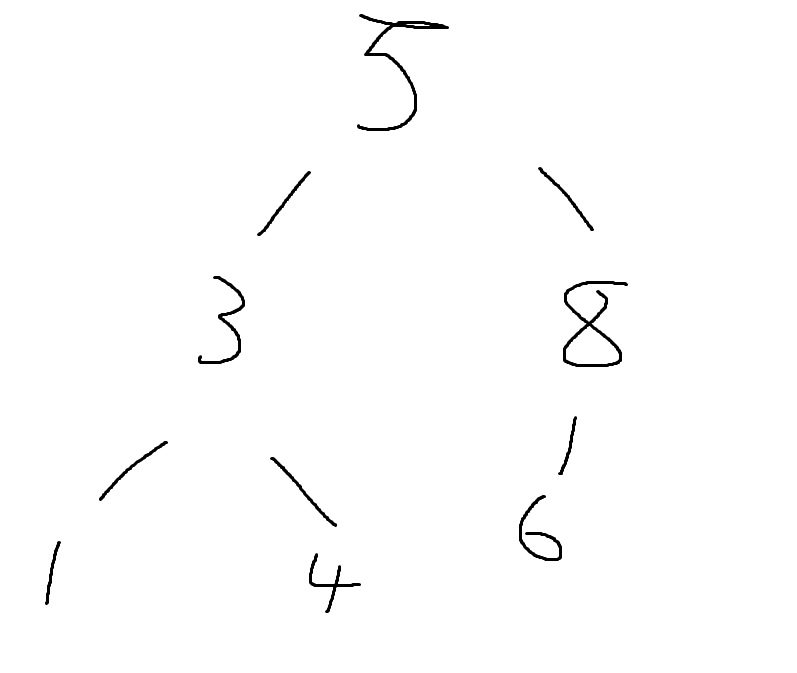 5
3 8
1 4 6